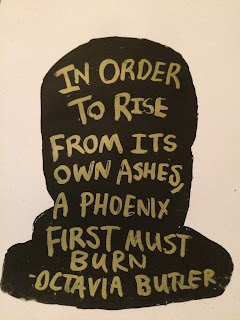 IN ORDER
TO RISE
FROM ITS
OWN ASHES,
A PHOENIX
FIRST MUST
BURN
-OCTAVIA BUTLER